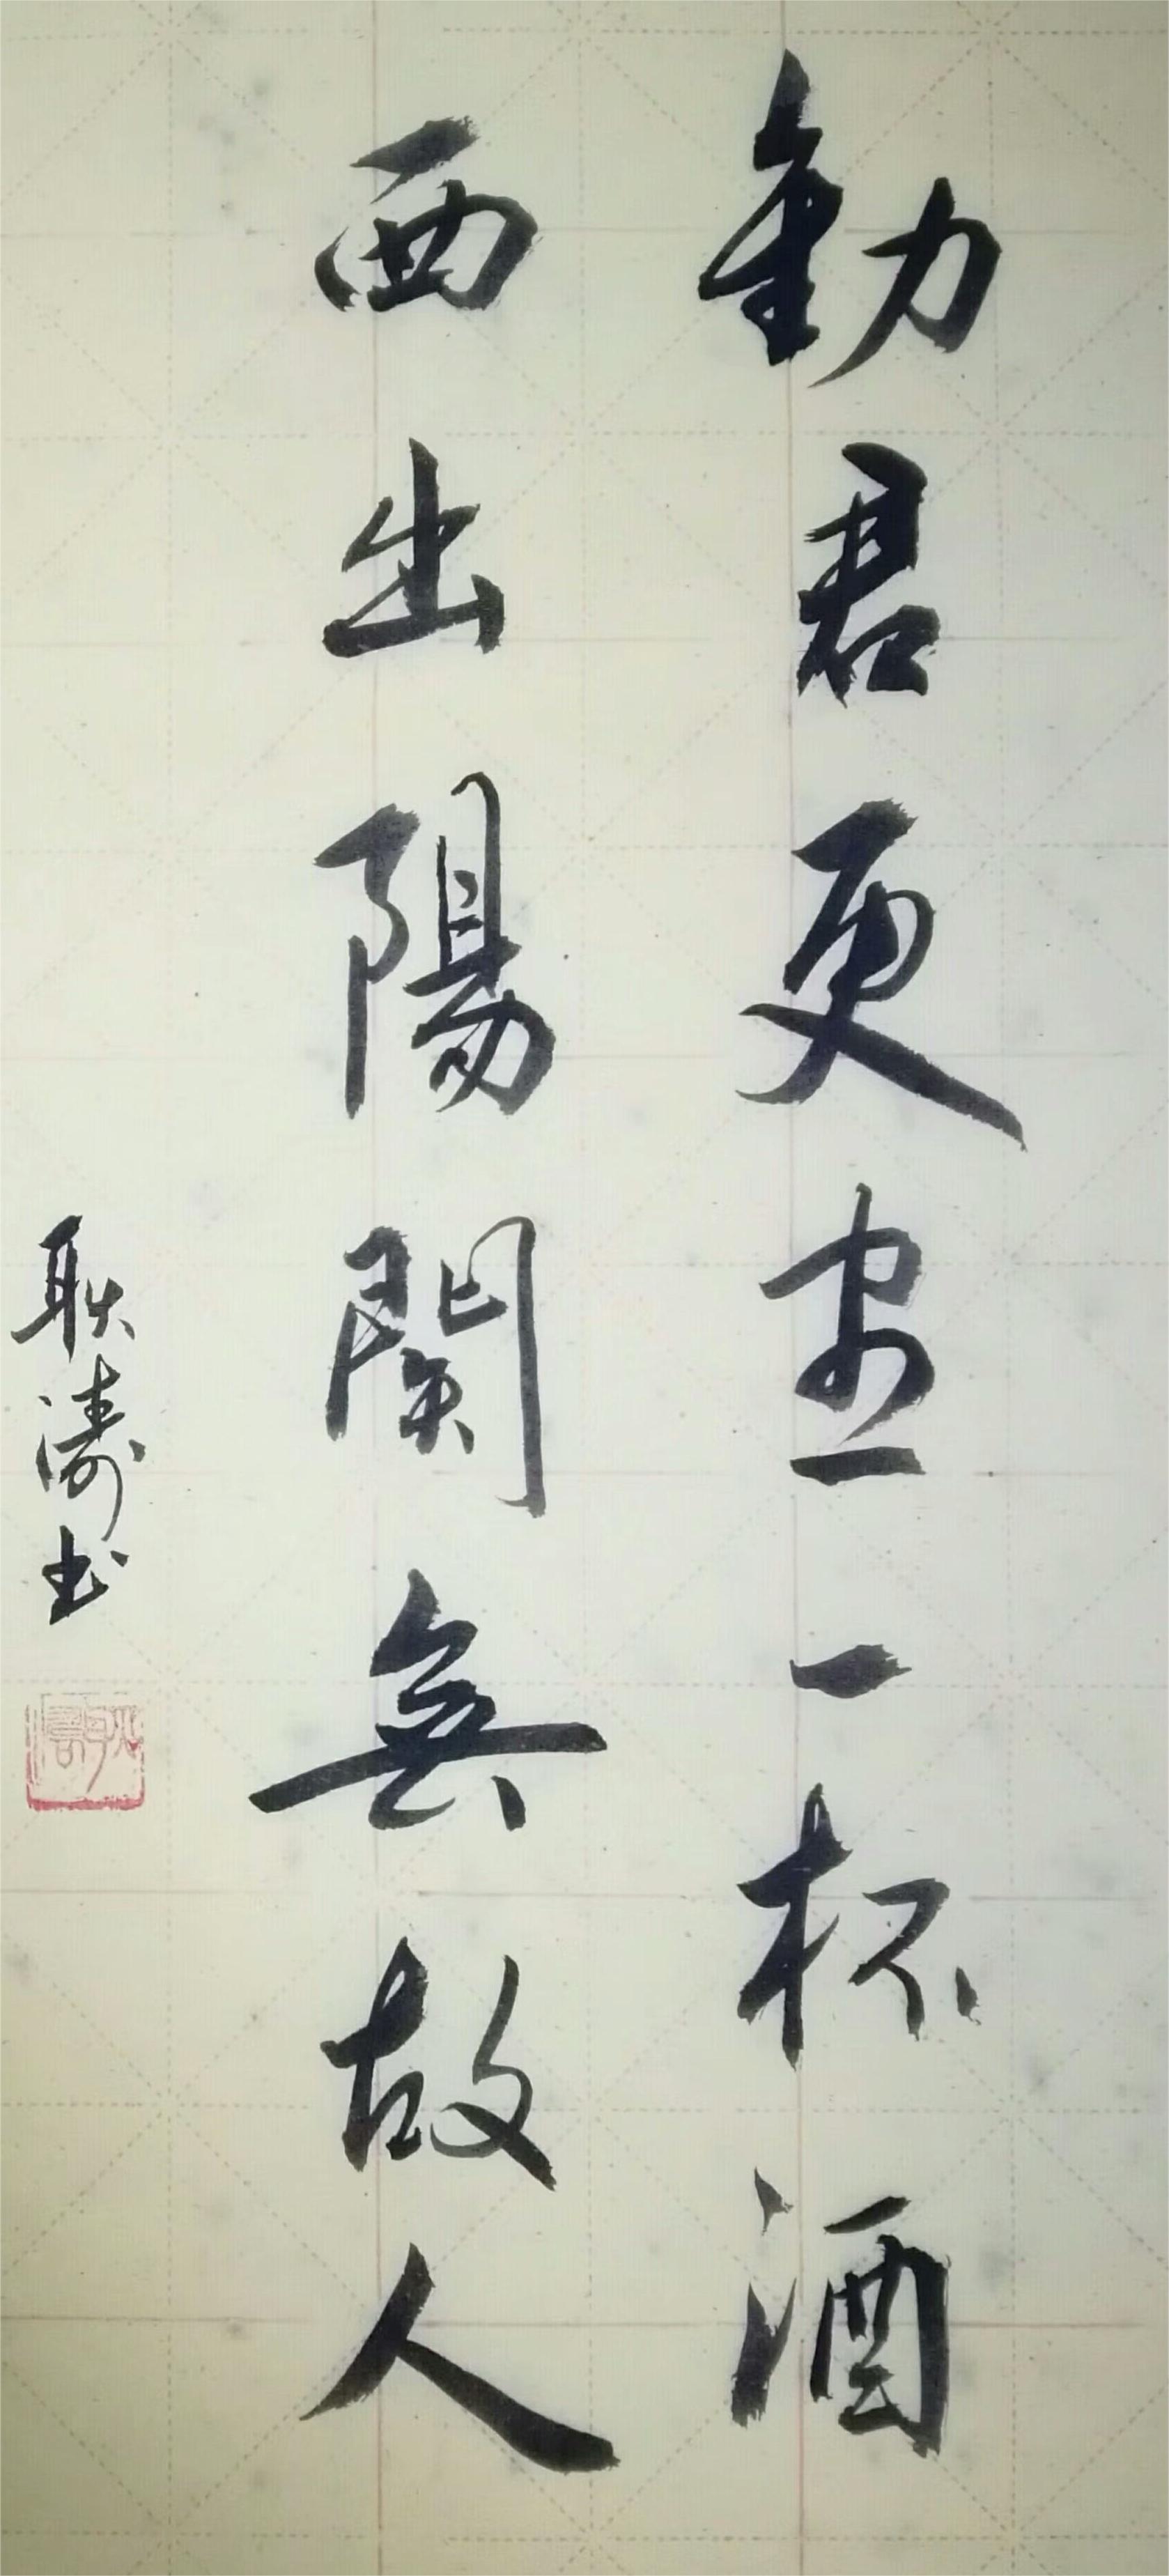 勸君更盡一杯酒
西出陽関無故人
耿濤书